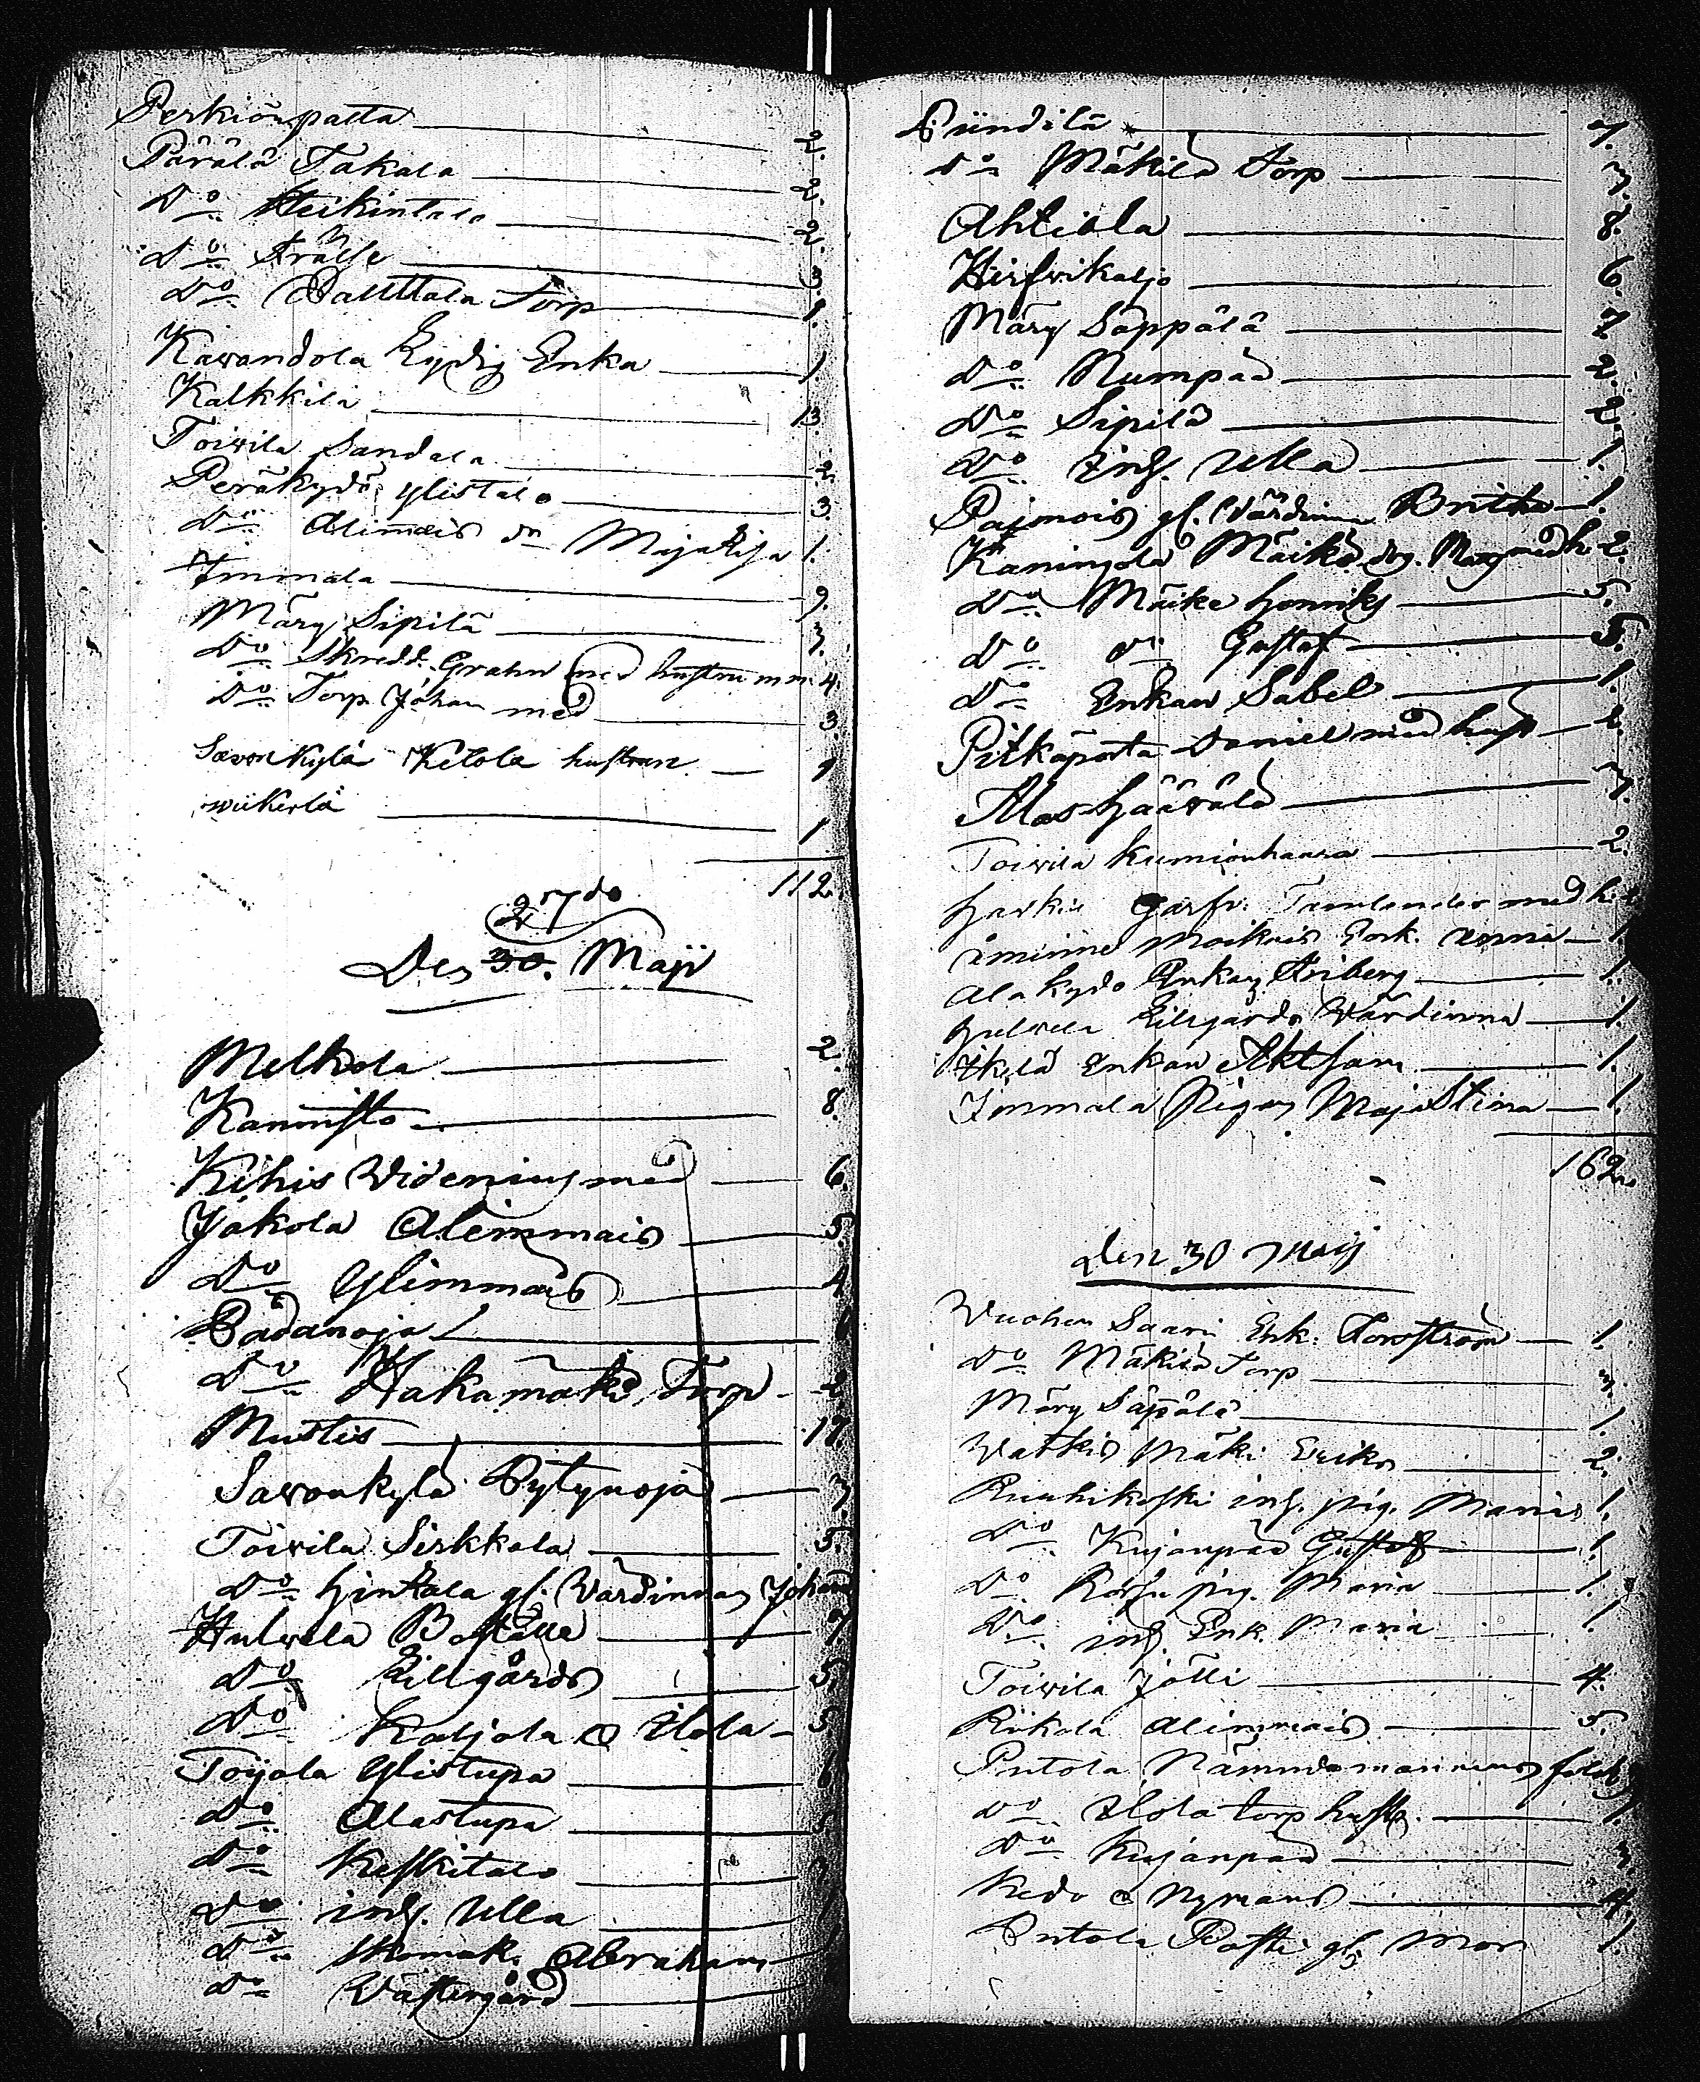 Perkiönpatta 2.
Pärälä Takala 2.
Do Heikintalo 2.
Do Frälse 3.
Do Palttala Torp 1.
Kavandola Lydig Enka 1.
Kalkkila 13.
Toivila Sandala 2.
Peräkydö Ylistalo 3.
Do Alimais dr Maja Lisa 1.
Immala 9.
Märy Sipilä 3.
Do Skredd. Grahn med hustru m m 4.
Do Torp Johan med 3.
Savonkylä Ketola hustrun 1
wiikerlä 1
112.
27de
Den 30. Maji
Melkola 2.
Kannisto 8.
Kihis Widenius med 6.
Jakola Alimmais 5.
Do Ylimmais 4
Padanoja
Do Hakamäki Torp 2
Mustis 17
Savonkylä Pytynoja 3.
Toivila Sirkkala 5.
Do Hintala gl. Värdinnan Johan
Hulvela Boställe 7
Do Lillgårds 5.
Do Kaljola & Uola 5
Toijola Ylistupa 6
Do Alastupa 5
Do Keskitalo
Do inh. Ulla 1
Do Skomak. Abraham
Do Västergård
Pundilä 7.
Do Mäkilä Torp 3.
Ahtiala 8.
Hirfvikaljo 6.
Märy Säppälä 7.
Do Numpää 2.
Do Sipilä 2.
Do inh. Ulla 1.
Pajonois gl. Värdinnan Britha 1.
Kaningola Mäike drg. Marg med h. 2.
Do Mäike Henriks 5.
Do Do Gustaf 5.
Do Enkan Sabel 1.
Pitkäporta Daniel med hust 2.
Alashäävälä 3.
Toivila Kumionhaara 2.
Harkis Garfv. Tamlander med h. 2
Åminne Moikois Enk. Anna 1.
Alakydö Enkan Friberg 1.
Hulvela Lillgårds Värdinna 1.
Ikilä Enkan Aktfars 1.
Immala Pigan Maja Stina 1.
162.
Den 30 Maij
Vuohen Saari Enk. Forsström 1.
Do Mäkilä Torp 3.
Märy Säppälä 1.
Vatkis Mäki Eriks 2.
Ruuhikoski inh. pig. Maria 1.
Do Kujanpää Gustaf 1.
Do Korhu pig. Maria 1.
Do inh. Enk. Maria 1
Toivila Jölli 4.
Rikala Alimmais 5.
Putola Nämndemannens folck
Do Uola torp hustr. 1.
Do Kujanpää 3.
Kedo & Nymans 4.
Putola Posti gl. Mor 1.